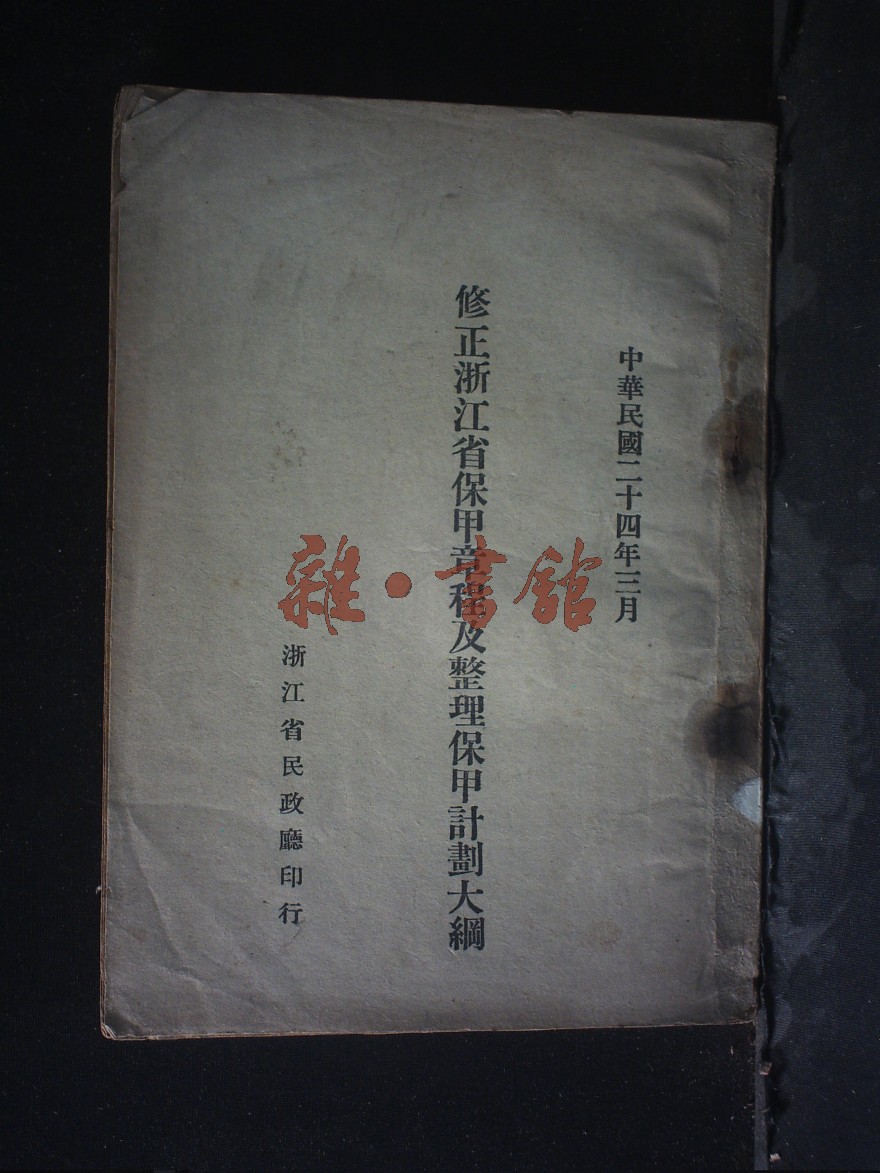 中華民國二十四年三月
修正浙江省保甲章程及整理保甲計劃大綱
浙江省民政廳印行
雜·書館